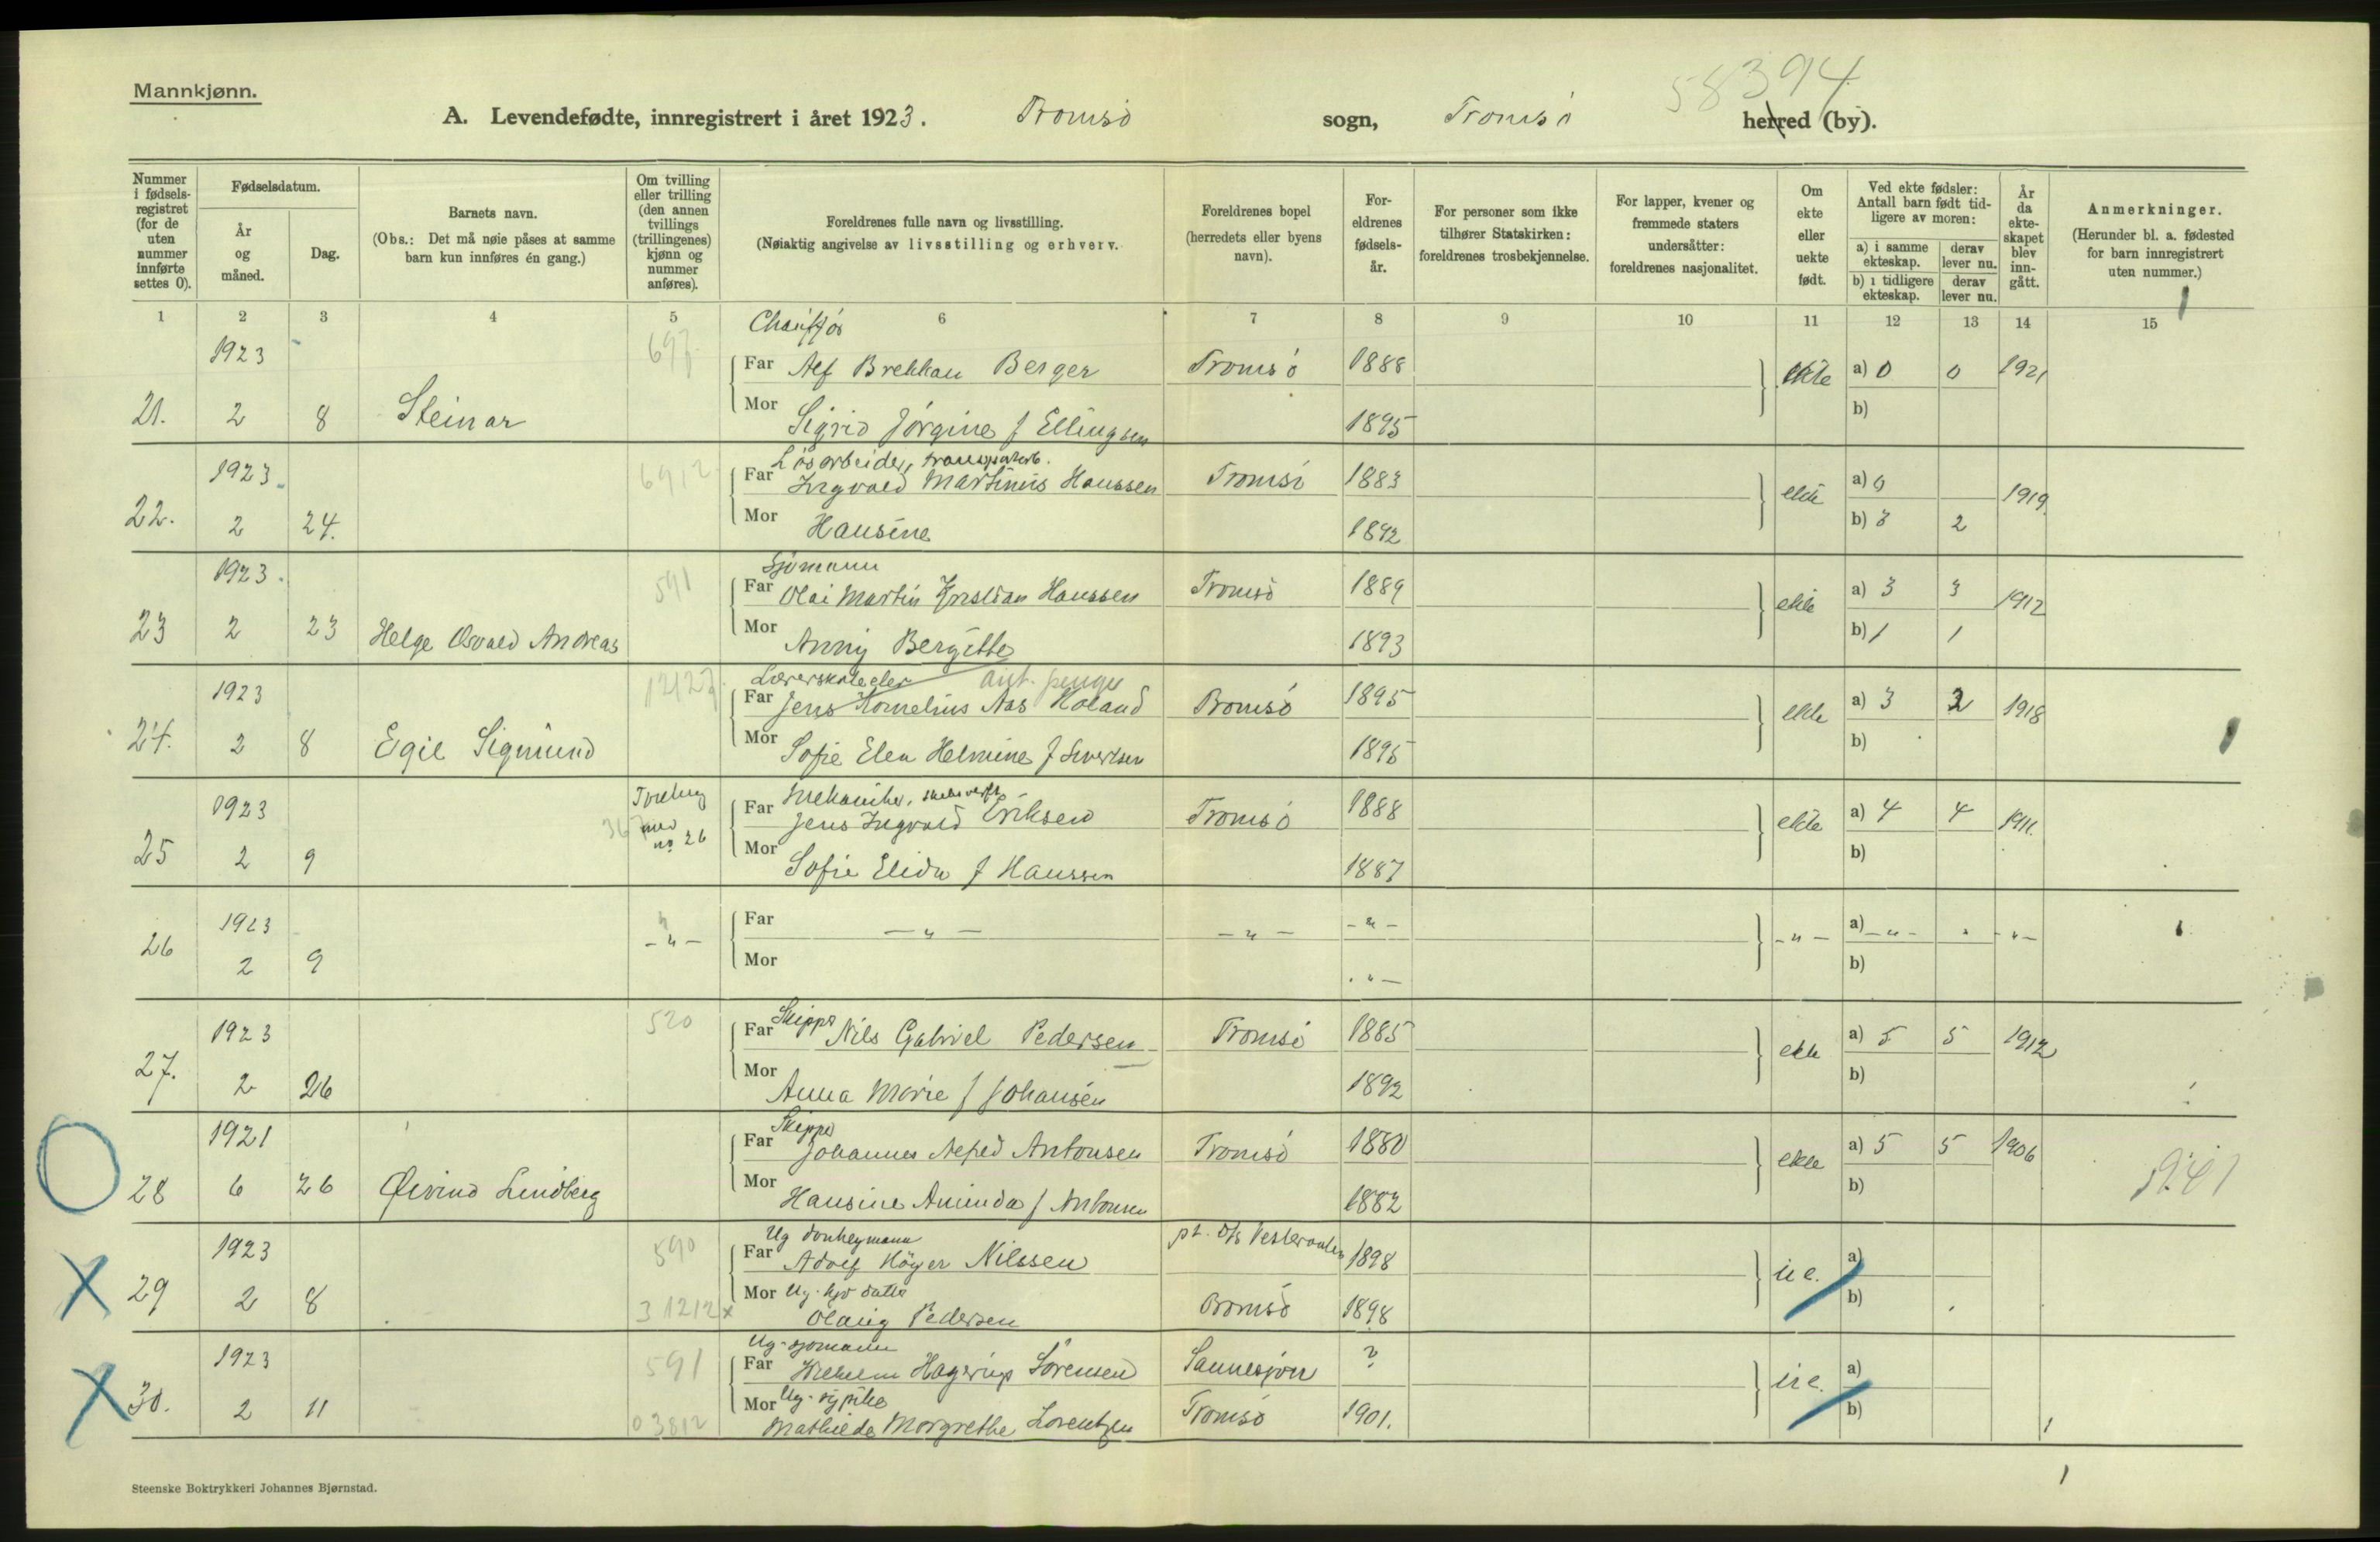 58394
Mannkjønn.
A. Levendefødte, innregistrert i året 1923. Tromsö sogn, Tromsö herred (by).
Nummer i fødsels-registret (for de uten nummer innførte settes 0).
Fødselsdatum.
År og måned.
Dag.
Barnets navn.
(Obs.: Det må nøie påses at samme barn kun innføres én gang.)
Om tvilling eller trilling (den annen tvillings (trillingenes) kjønn og nummer anføres).
Foreldrenes fulle navn og livsstilling.
(Nøiaktig angivelse av livsstilling og erhverv.
Foreldrenes bopel (herredets eller byens navn).
For-eldrenes fødsels-år.
For personer som ikke tilhører Statskirken: foreldrenes trosbekjennelse.
For lapper, kvener og fremmede staters undersåtter: foreldrenes nasjonalitet.
Om ekte eller uekte født.
Ved ekte fødsler: Antall barn født tid-ligere av moren:
a) i samme ekteskap.
derav lever nu.
b) i tidligere ekteskap.
derav lever nu.
År da ekte-skapet blev inn-gått.
Anmerkninger.
(Herunder bl. a. fødested for barn innregistrert uten nummer.)
1 2 3 4 5 6 7 8 9 10 11 12 13 14 15
Chauffør
1923 697 Far Alf Brekkan Berger Tromsö 1888 ekte a) 0 0 1921
21. 2 8 Steinar Mor Sigrid Jörgine f Ellingsen 1895 b)
Lösarbeider, transportarb.
1923 6912 Far Ingvald Martinius Hanssen Tromsö 1883 ekte a) 0 1919
22. 2 24. Mor Hansine 1892 b) 3 2
Sjömann
1923. 591 Far Olai Martin Kristian Hanssen Tromsö 1889 ekte a) 3 3 1912
23 2 23 Helge Osvald Andreas Mor Anny Bergitte 1893 b) 1 1
Lærerskoleelev ant. penger
1923 Far Jens Kornelius Aas Holand Tromsö 1895 ekte a) 3 2 1918
24. 2 8 Egil Sigmund Mor Sofie Elen Helmine f Sivertsen 1895 b)
Tvilling Mekaniker, skibsverft
1923 367 med no 26 Far Jens Ingvald Eriksen Tromsö 1888 ekte a) 4 4 1911.
25 2 9 Mor Sofie Elida f Hanssen 1887 b)
1923 - " - Far - " - - " - - " - - " - a) - " - " - " -
26 2 9 Mor - " - b)
1923 520 Far Skipper Nils Gabriel Pedersen Tromsö 1885 ekte a) 5 5 1912
27. 2 26 Mor Anna Marie f Johansen 1892 b)
Skipper
1921 Far Johannes Alfred Antonsen Tromsö 1880 ekte a) 5 5 1906
28 6 26 Øivind Lindberg Mor Hansine Aminda f Antonsen 1882 b)
Ug donkeymann
1923 590 Far Adolf Höyer Nilssen pt. D/s Vesteraalen 1898 ue. a)
29 2 8 31212 x Mor Ug. hjv datter Olaug Pedersen Tromsö 1898 b)
Ug. sjömann
1923 591 Far Wilhelm Hagerup Sörensen Sannesjöen ? ue. a)
30. 2 11 03812 Mor Ug. sypike Mathilde Margrethe Lorentzen Tromsö 1901. b)
Steenske Boktrykkeri Johannes Bjørnstad.